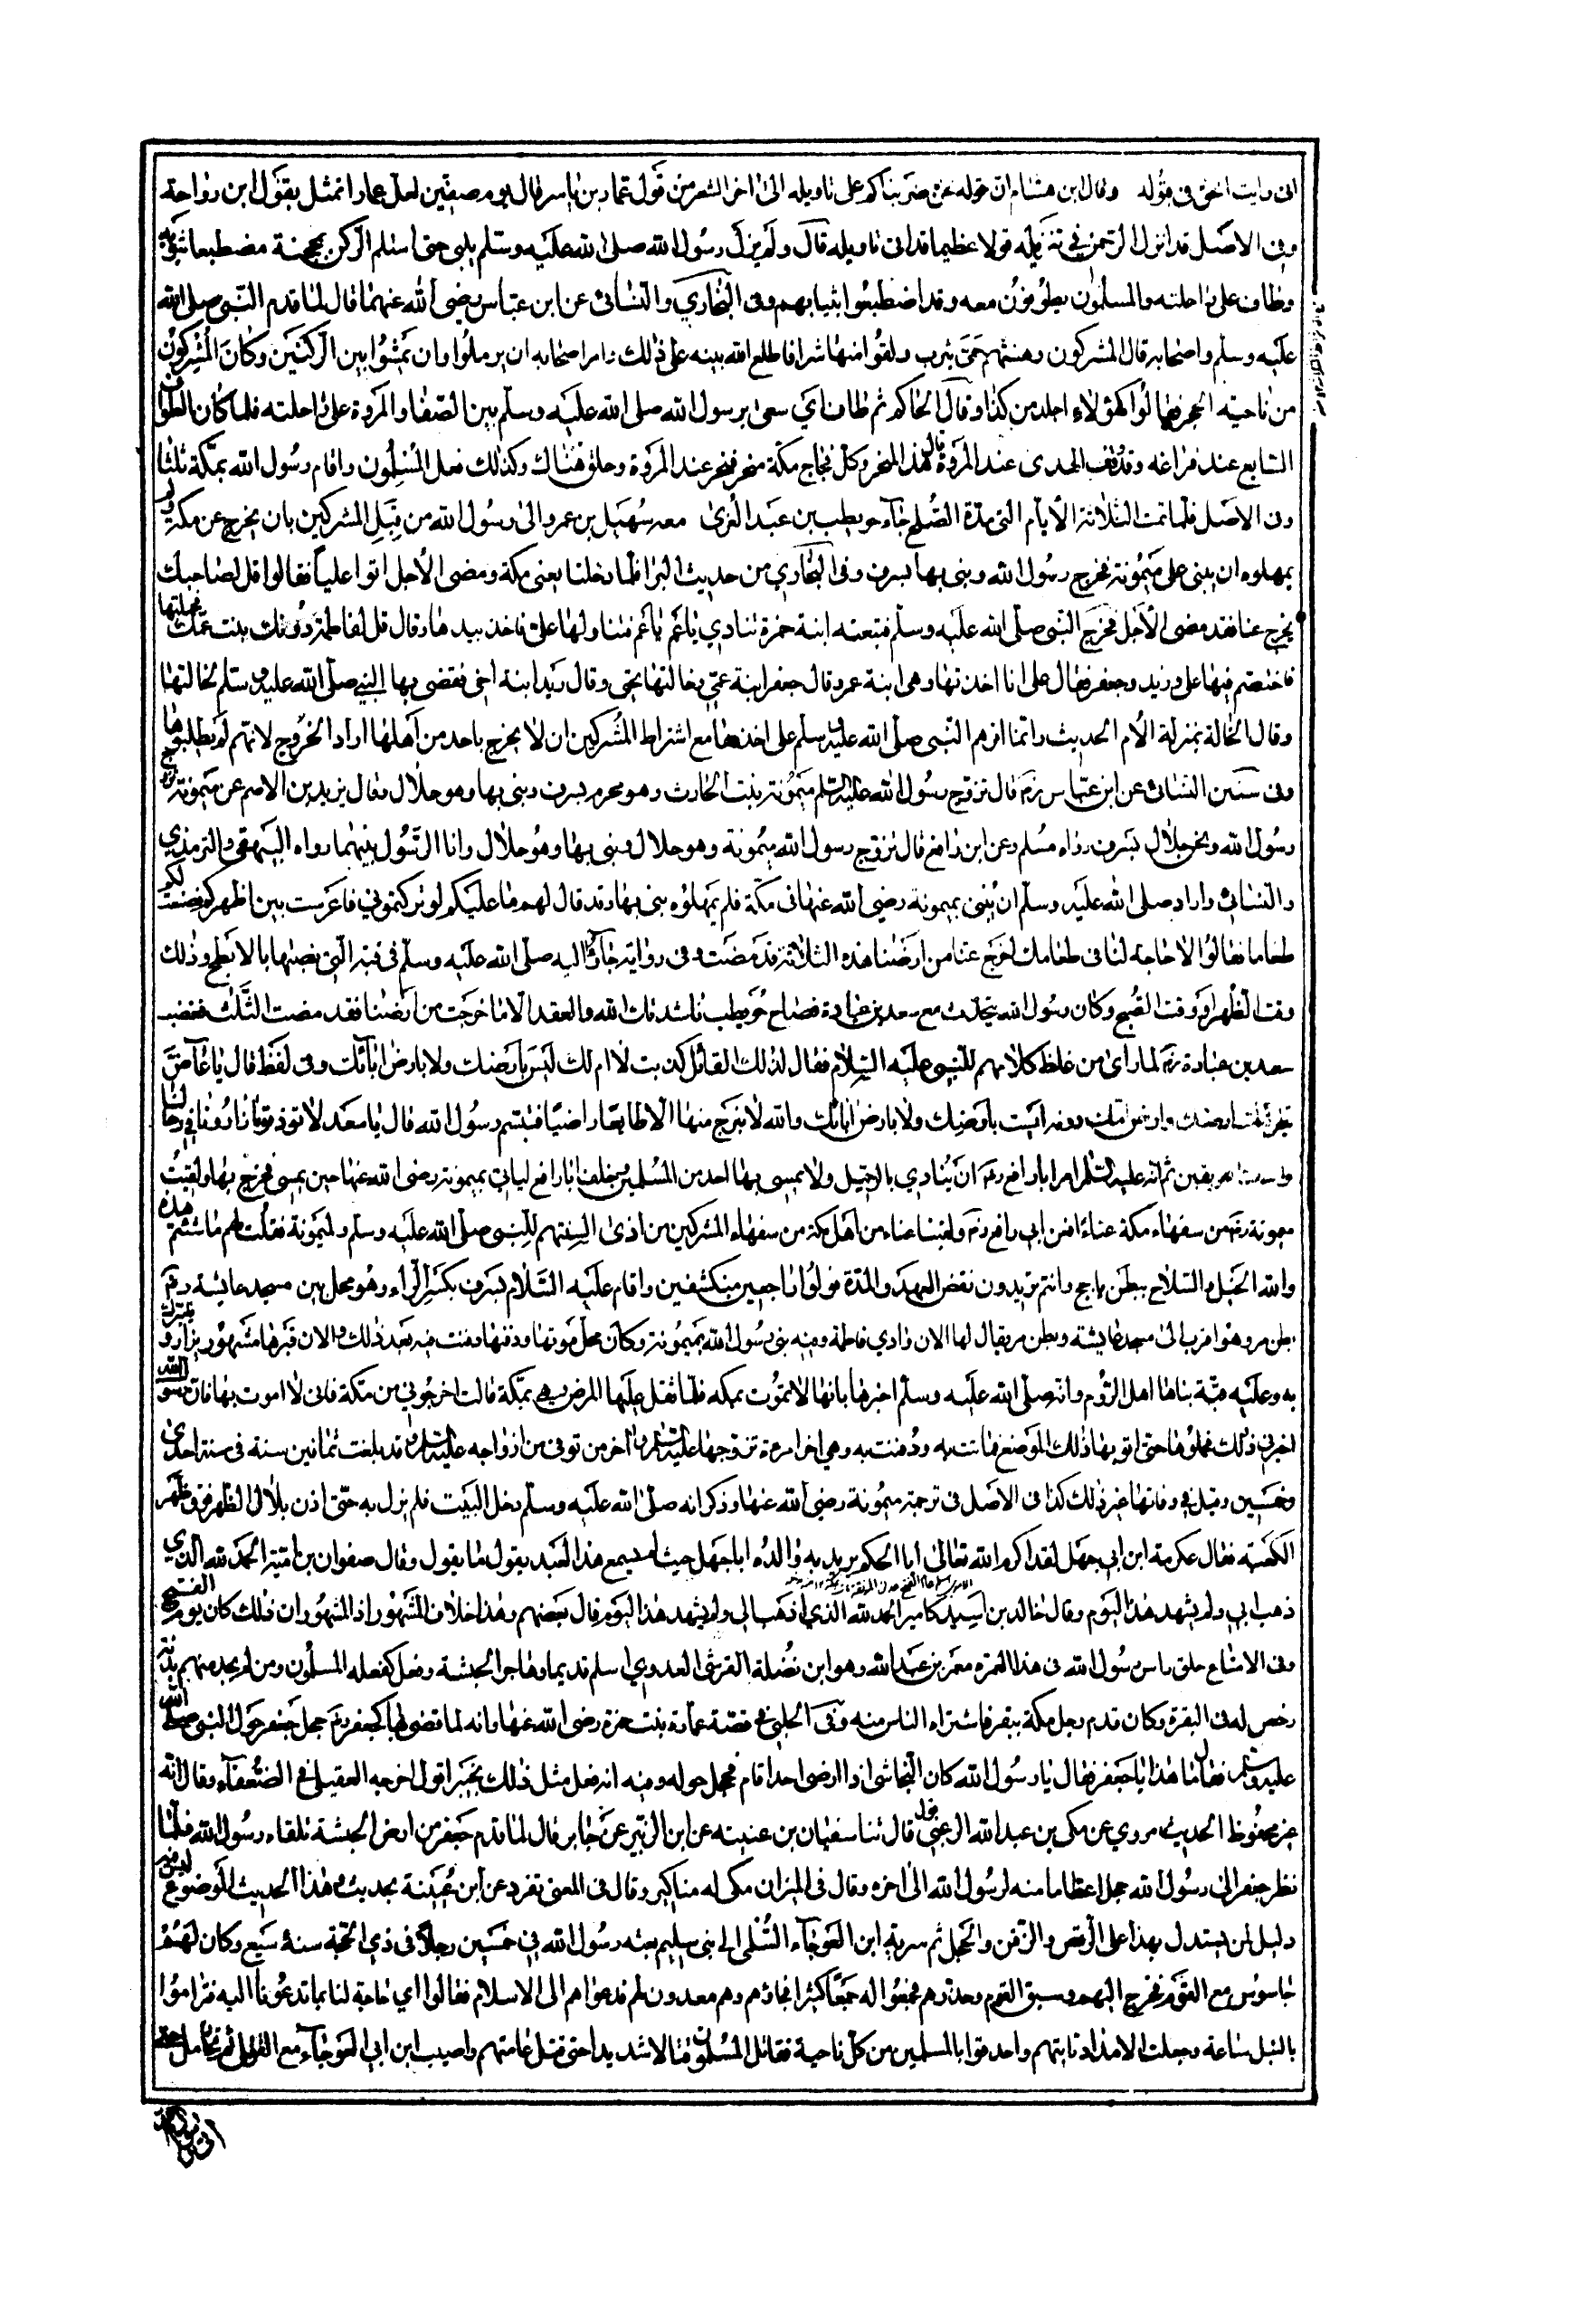 انى رايت الحق فى قوله وقال ابن هشام ان قوله نحن ضربناكم على تاويله الى اخر الشعر من قول عمار بن ياسر قال يوم صفين لعل عمارا تمثل بقول ابن رواحة
وفى الاصل قد انزل الرحمن فى تنزيله قولا عظيما قد اتى تاويله قال ولم يزل رسول الله صلى الله عليه وسلم يلبى حتى استلم الركن بمحجنة مضطبعا بثوبه
وطاف على راحلته والمسلمون يطوفون معه وقد اضطبعوا بثيابهم وفى البخاري والنسائى عن ابن عباس رضى الله عنهما قال لما قدم النبى صلى الله
عليه وسلم واصحابه قال المشركون وهنتهم حمى يثرب ولقوا منها شرا فاطلع الله نبيه على ذلك وامر اصحابه ان يرملوا وان يمشوا بين الركنين وكان المشركون
من ناحية الحجر فقالوا لهؤلاء اجلد من كذا وقال الحاكم ثم طاف اى سعى برسول الله صلى الله عليه وسلم بين الصفا والمروة على راحلته فلما كان الطواف
السابع عند فراغه وقد وقف الهدى عند المروة قال هذا المنحر وكل فجاج مكة منحر فنحر عند المروة وحلق هناك وكذلك فعل المسلمون واقام رسول الله بمكة ثلثا
وفى الاصل فلما تمت الثلاثة الايام التى مدة الصلح جاء حويطب بن عبد العزى معه سهيل بن عمرو الى رسول الله من قبل المشركين بان يخرج عن مكة ولم
يمهلوه ان يبنى على ميمونة فخرج رسول الله وبنى بها بسرف وفى البخاري من حديث البرا فلما دخلنا يعنى مكة ومضى الاجل اتوا عليا فقالوا قل لصاحبك
يخرج عنا فقد مضى الاجل فخرج النبى صلى الله عليه وسلم فتبعته ابنة حمزة تنادي يا عم يا عم فتناولها على فاخذ بيدها وقال قل لفاطمة دونك بنت عمك فحملتها
فاختصم فيها على وزيد وجعفر فقال على انا اخذتها وهى ابنة عمى وقال جعفر ابنة عمى وخالتها تحتى وقال زيد ابنة اخى فقضى بها النبي صلى الله عليه وسلم لخالتها
وقال الخالة بمنزلة الام الحديث وانما اقرهم النبى صلى الله عليه وسلم على اخذها مع اشتراط المشركين ان لا يخرج باحد من اهلها اراد الخروج لانهم لم يطلبوها
وفى سنن النسائى عن ابن عباس قال تزوج رسول الله عليه السلم ميمونة بنت الحارث وهو محرم بسرف وبنى بها وهو حلال وقال يزيد بن الاصم عن ميمونة تزوج
رسول الله ونحن حلال بسرف رواه مسلم وعن ابن رافع قال تزوج رسول الله ميمونة وهو حلال وبنى بها وهو حلال وانا الرسول بينهما رواه البيهقى والترمذي
والنسائى واراد صلى الله عليه وسلم ان يبنى بميمونة رضى الله عنها فى مكة فلم يمهلوه بنى بها وقد قال لهم ما عليكم لو تركتموني فاعرست بين اظهركم فصنعت لكم
طعاما فقالوا لا حاجة لنا فى طعامك اخرج عنا من ارضنا هذه الثلاثة قد مضت وفى رواية جاؤا اليه صلى الله عليه وسلم فى قبة التى نصبتها بالابطح وذلك
وقت الظهر او وقت الصبح وكان رسول الله يتحدث مع سعد بن عبادة فصاح حويطب ناشدناك الله والعقد الا ما خرجت من ارضنا فقد مضت الثلث فغضب
سعد بن عبادة لما راى من غلظ كلامهم للنبى عليه السلام فقال لذلك القائل كذبت لا ام لك ليس بارضك ولا بارض آبائك وفى لفظ قال يا عاض
ارضك ليست بارضك ولا بارض ابائك والله لا نبرح منها الا طايعا راضيا فتبسم رسول الله قال يا سعد لا توذ قوما زارونا فى رحالنا
ثم انه عليه السلم امر ابا رافع ان ينادي بالرحيل ولا يمسى بها احد من المسلمين وخلف ابا رافع لياتى بميمونة رضى الله عنها حين يمسى فخرج بها ولقيت
ميمونة من سفهاء مكة عناء فعن ابي رافع ولقينا عناء من اهل مكة من سفهاء المشركين من اذى السنتهم للنبى صلى الله عليه وسلم ولميمونة فقلت لهم ما شئتم هذه
والله الخيل والسلاح ببطن ياجج وانتم تريدون نقض العهد والمدة فولوا راجعين منكشفين واقام عليه السلام بسرف بكسر الراء وهو محل بين مسجد عايشة
بطن مرو هو اقرب الى مسجد عايشة وبطن مر يقال لها الان وادي فاطمة ومنه بنى رسول الله بميمونة وكان محل موتها ودفنها دفنت فيه بعد ذلك والان قبرها مشهور يزار ويتبرك
به وعليه قبة بناها اهل الروم وانه صلى الله عليه وسلم اخبرها بانها لا تموت بمكه فلما ثقل عليها المرض وهى بمكة قالت اخرجوني من مكة فانى لا اموت بها فان رسول الله
اخبرني ذلك فحملوها حتى اتو بها ذلك الموضع فماتت به ودفنت به وهى اخر امرءة تزوجها عليه السلام اخر من توفى من ازواجه عليه السلام قد بلغت ثمانين سنة فى سنة احدى
وخمسين وقيل فى وفاتها غير ذلك كذا فى الاصل فى ترجمة ميمونة رضى الله عنها وذكر انه صلى الله عليه وسلم دخل البيت فلم يزل به حتى اذن بلال الظهر فوق ظهر
الكعبة فقال عكرمة ابن ابي جهل لقد اكرم الله تعالى ابا الحكم يريد به والده ابا جهل حيث لم يسمع هذا العبد يقول ما يقول وقال صفوان بن امية الحمد لله الذي
ذهب ابي ولم يشهد هذا اليوم وقال خالد بن اسيد كامير الحمد لله الذي اذهب ابي ولم يشهد هذا اليوم قال بعضهم وهذا خلاف المشهور اذ المشهور ان ذلك كان يوم الفتح
وفى الامتاع حلق راس رسول الله فى هذا العمرة معمر بن عبد الله وهو ابن نضلة القرشى العدوي اسلم قديما وهاجر الحبشة وفعل كفعله المسلمون ومن لم يجد منهم بدنة
رخص له فى البقرة وكان قدم رجل مكة ببقر فاشتراه الناس منه وفى الحلبى فى قصة عمارة بنت حمزة رضى الله عنها وانه لما قضى لها لجعفر حجل جعفر حول النبى صلى الله
عليه وسلم فقال ما هذا يا جعفر فقال يا رسول الله كان النجاشى اذا ارضى احدا قام فحجل حوله ومنه انه فعل مثل ذلك بخيبر اقول اخرجه العقيلى فى الضعفاء وقال انه
غير محفوظ الحديث مروي عن مكى بن عبد الله الرعينى قال ثنا سفيان بن عيينه عن ابن الزبير عن جابر قال لما قدم جعفر من ارض الحبشة تلقاه رسول الله فلما
نظر جعفر الى رسول الله حجل اعظاما منه لرسول الله الى اخره وقال فى الميزان مكى له مناكير وقال فى المغنى تفرد عن ابن عيينة بحديث هذا الحديث الموضوع ليس فيه
دليل لمن يستدل بهذا على الرقص والزفن والحجل ثم سرية ابن العوجاء السلمى الى بنى سليم بعثه رسول الله فى خمسين رجلا فى ذي الحجة سنة سبع وكان لهم
جاسوس مع القوم فخرج اليهم وسبق القوم وحذرهم فجمعوا له جمعا كثيرا فجاؤهم وهم معدون لهم فدعواهم الى الاسلام فقالوا اي حاجة لنا بما تدعونا اليه فتراموا
بالنبل ساعة وجعلت الامداد تاتيهم واحدقوا بالمسلمين من كل ناحية فقاتل المسلمون قتالا شديدا حتى قتل عامتهم واصيب ابن ابي العوجاء مع القتلى ثم تحامل حتى